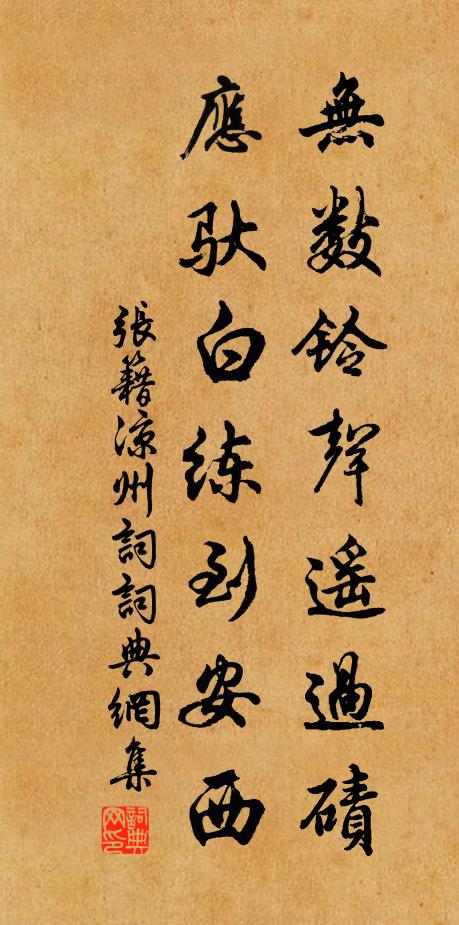 無数鈴聲遥過磧
應馱白练到安西
張籍凉州詞詞典網集
詞典网印